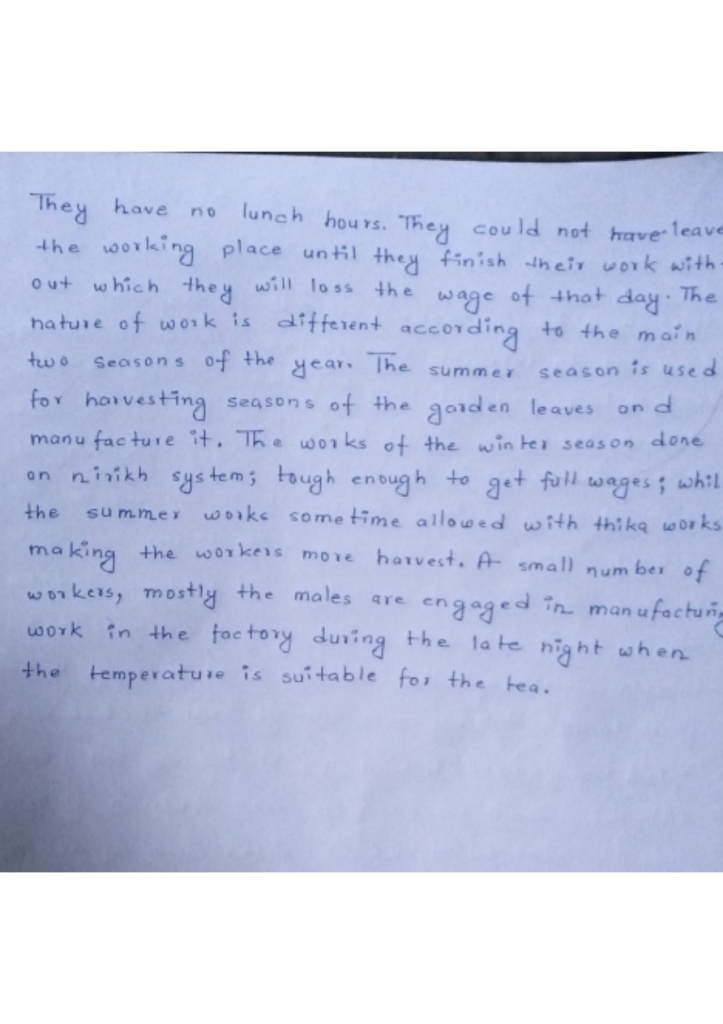 They have no lunch hours. They could not have leave
the working place until they finish their work with-
out which they will loss the wage of that day. The
nature of work is different according to the main
two seasons of the year. The summer season is used
for harvesting seasons of the garden leaves and
manufacture it. The works of the winter season done
on nirikh system; tough enough to get full wages; whil
the summer works sometime allowed with thika works
making the workers more harvest. A small number of
workers, mostly the males are engaged in manufacturing
work in the factory during the late night when
the temperature is suitable for the tea.